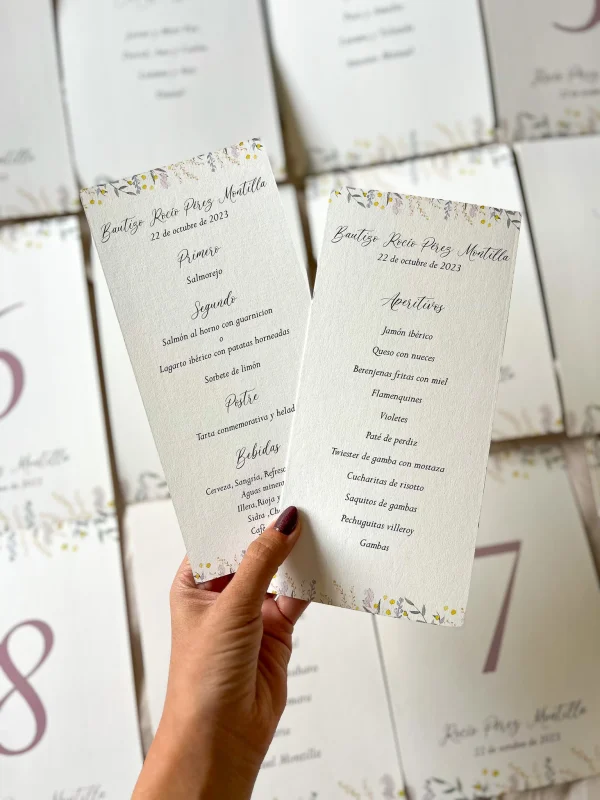 Bautizo Rocío Pérez Montilla
22 de octubre de 2023
Primero
Salmorejo
Segundo
Salmón al horno con guarnicion
o
Lagarto ibérico con patatas horneadas
Sorbete de limón
Postre
Tarta conmemorativa y helad
Bebidas
Cerveza, Sangría, Refresc
Aguas minera
Illera, Rioja y
Sidra, Ch
Café
Bautizo Rocío Pérez Montilla
22 de octubre de 2023
Aperitivos
Jamón ibérico
Queso con nueces
Berenjenas fritas con miel
Flamenquines
Violetes
Paté de perdiz
Twiester de gamba con mostaza
Cucharitas de risotto
Saquitos de gambas
Pechuguitas villeroy
Gambas
8
7
Rocío Pérez Montilla
22 de octubre de 2023
Montilla